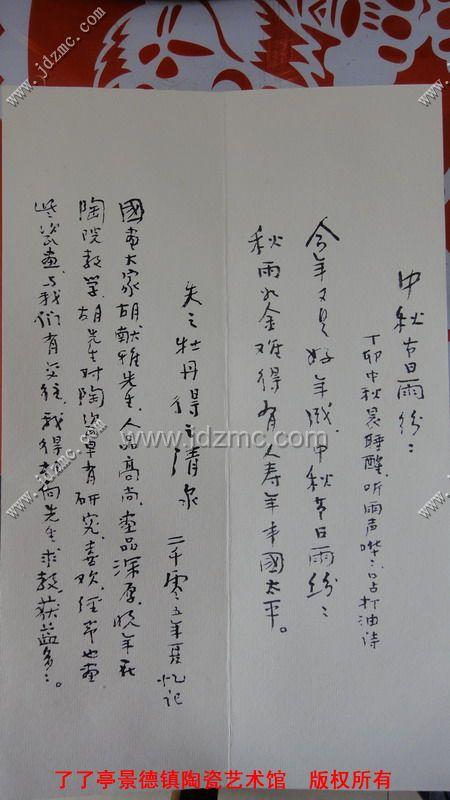 中秋节日雨纷々
丁卯中秋晨睡醒.听雨声哗々.口占打油诗
今年又是好年成.中秋节日雨纷々
秋雨如金难得有人寿年丰國太平。
失之牡丹得之清泉
二千零五年夏忆记
國畫大家胡献雅先生.人品高尚.畫品深厚.晚年在
陶院教学.胡先生对陶瓷卓有研究.喜欢.经常也畫
些瓷畫.与我们有交往.我得求向先生求教.获益多々。
www.jdzmc.com
www.jdzmc.com
www.jdzmc.com
www.jdzmc.com
www.jdzmc.com
了了亭景德镇陶瓷艺术馆 版权所有